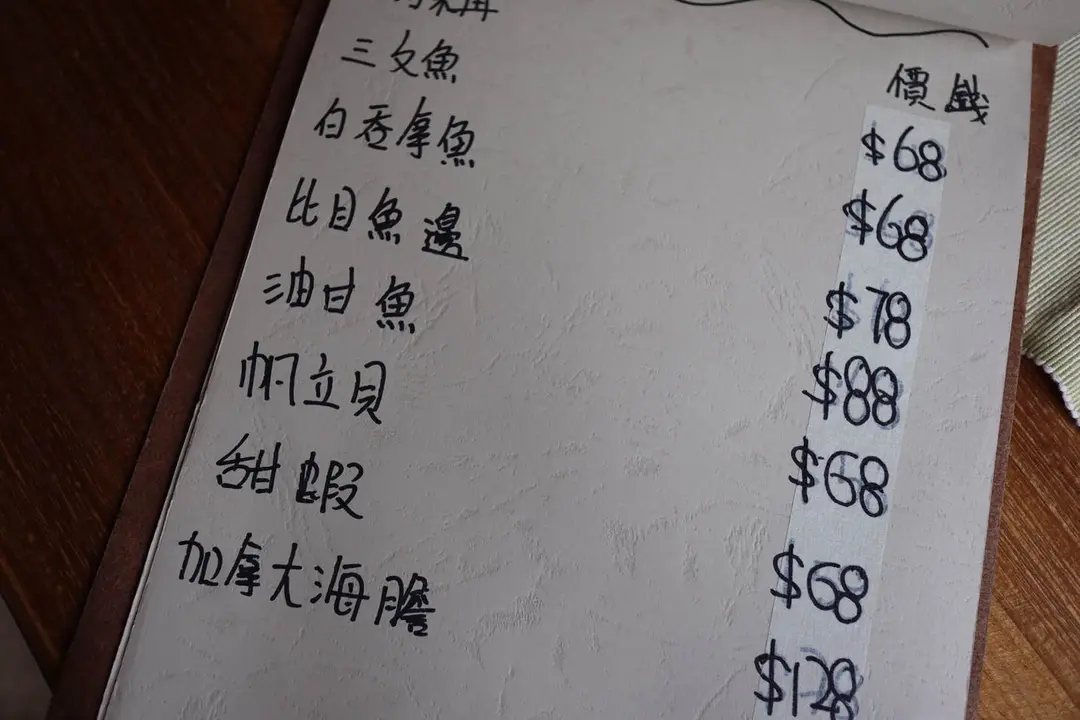 價錢
三文魚 $68
白吞拿魚 $68
比目魚邊 $78
油甘魚 $88
帆立貝 $68
甜蝦 $68
加拿大海膽 $128